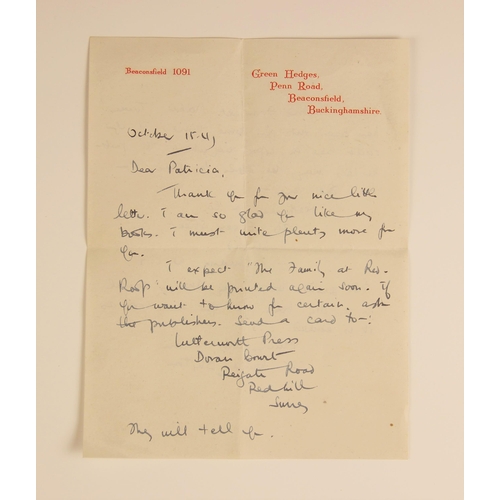 Beaconsfield 1091
Green Hedges,
Penn Road,
Beaconsfield,
Buckinghamshire.
October 15.
Dear Patricia,
Thank you for your nice little
letter. I am so glad you like my
books. I must write plenty more for
you.
I expect "The Family at Red-
Roofs" will be printed again soon. If
you want to know for certain, ask
the publishers. Send a card to -:
Lutterworth Press
Doran Court
Reigate Road
Redhill
Surrey
They will tell you.